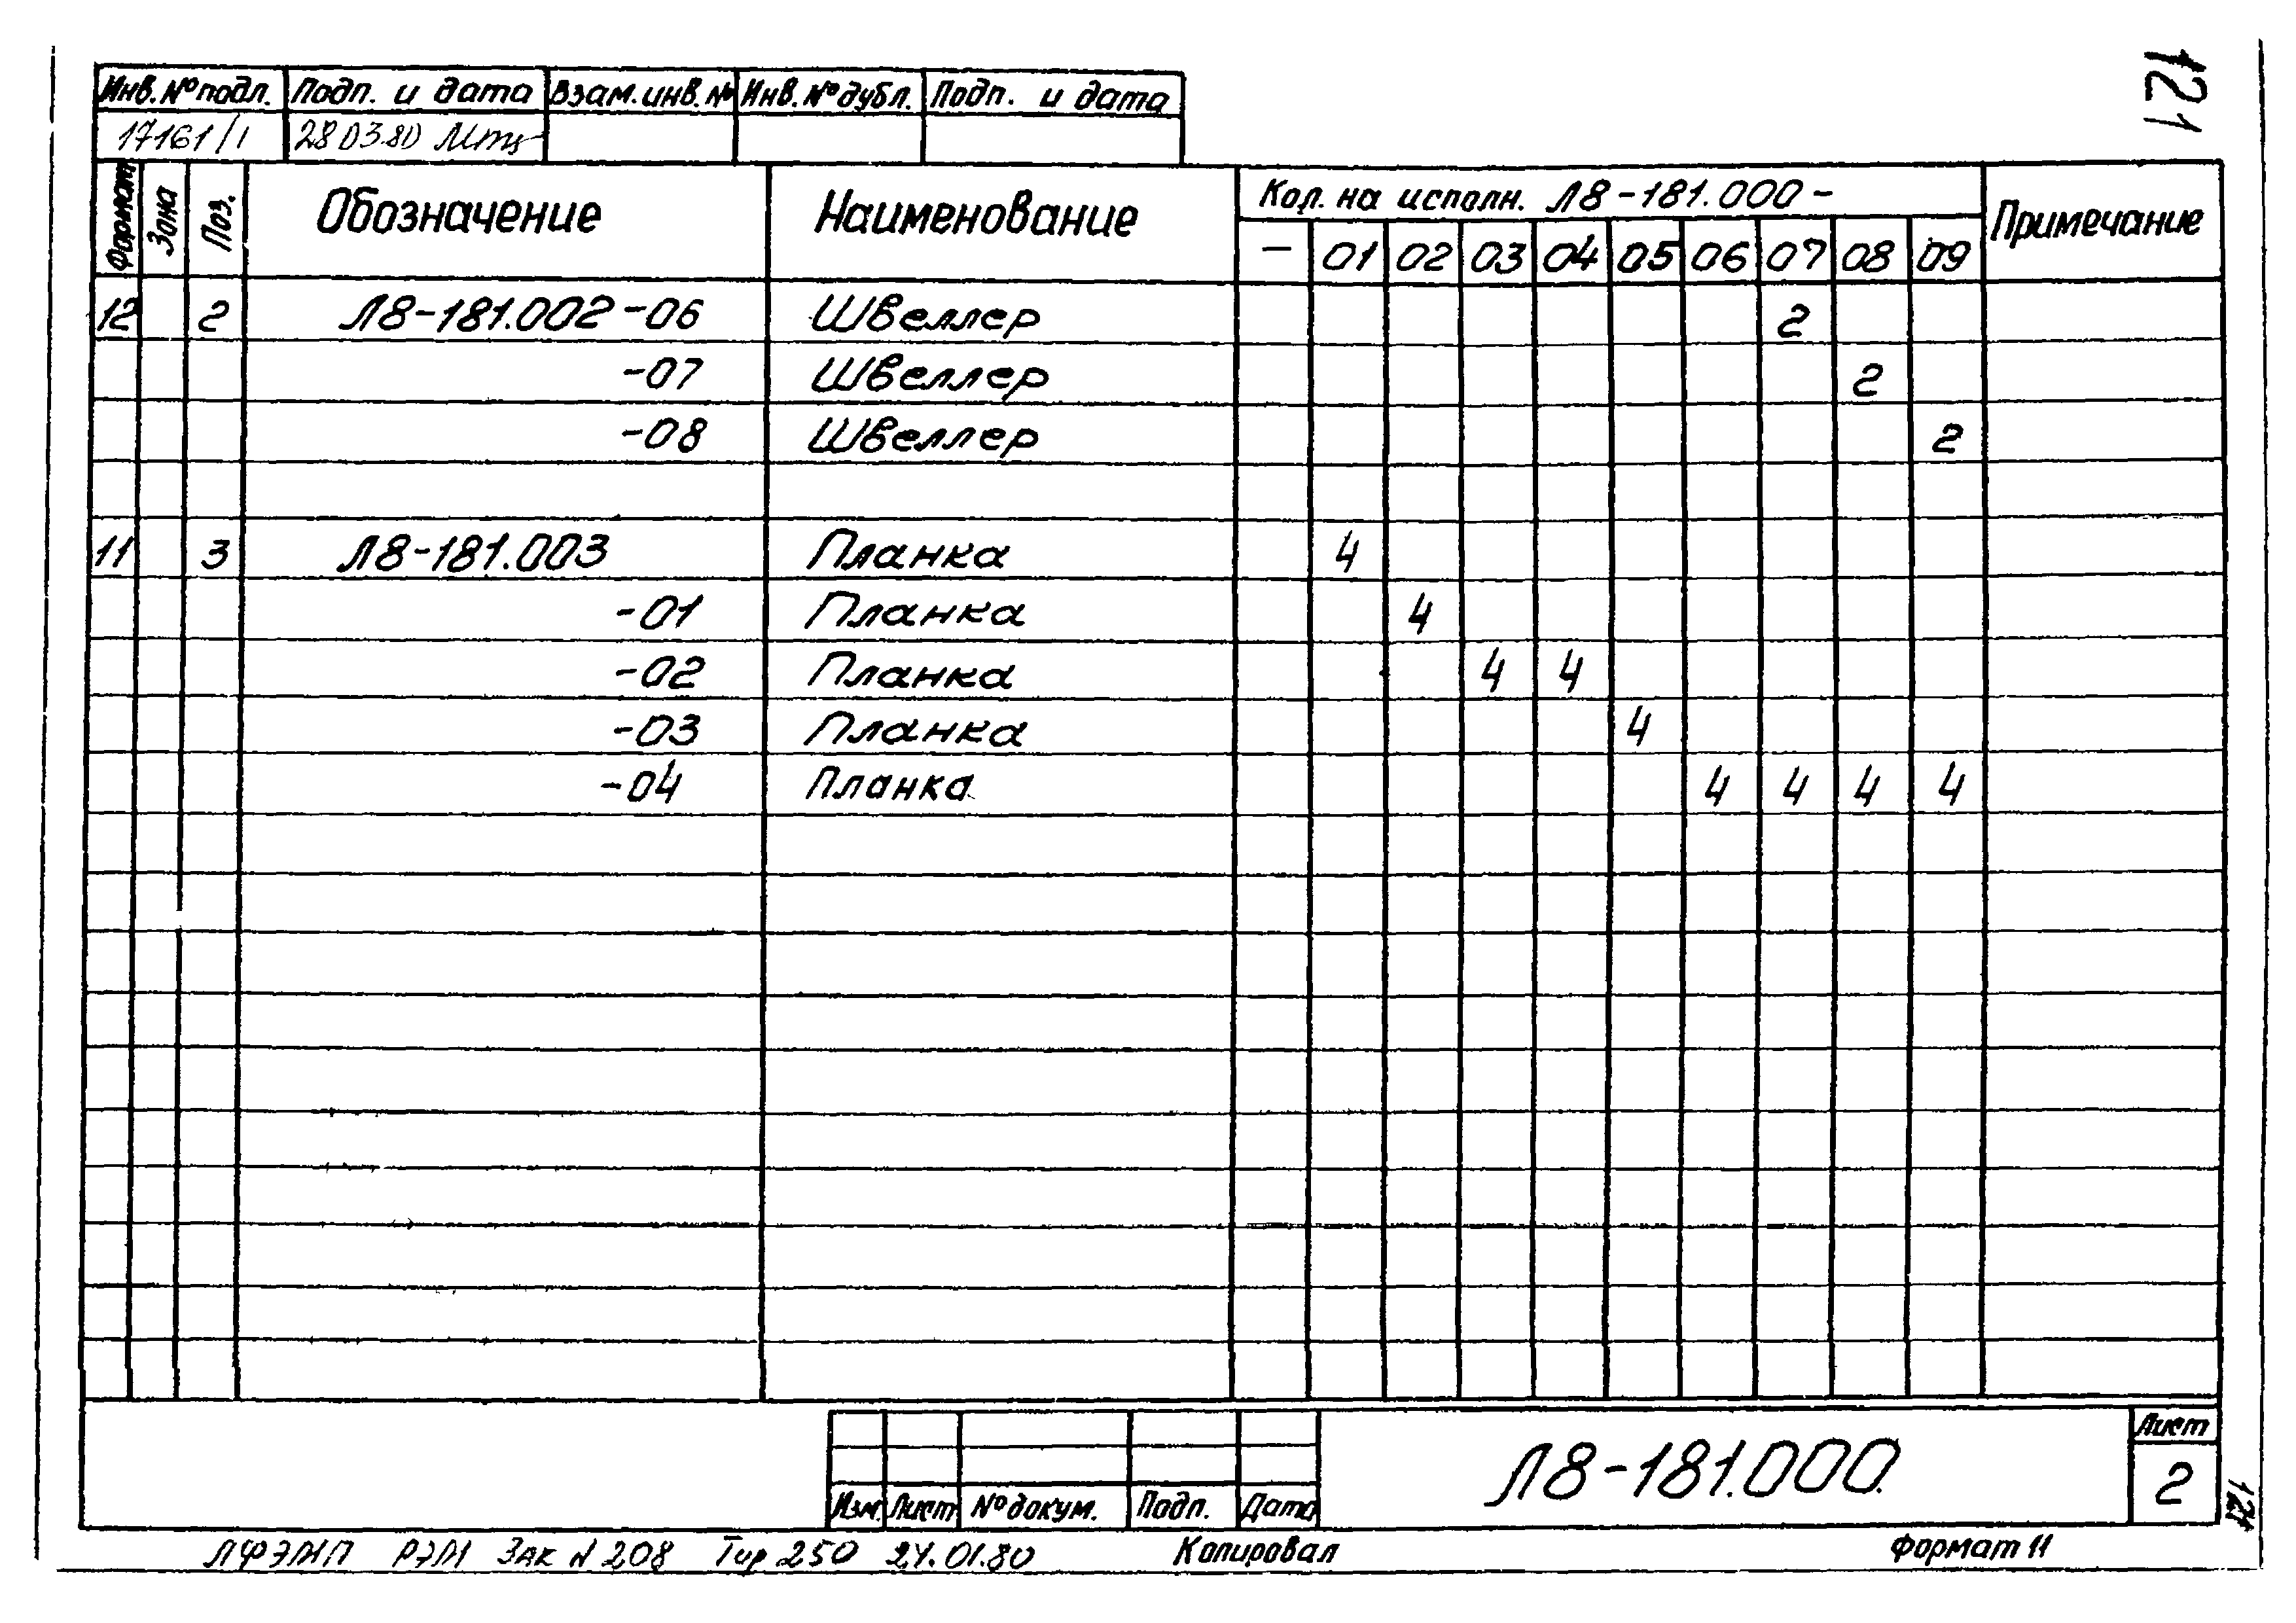 121
Инв. № подл. Подп. и дата Взам. инв. № Инв. № дубл. Подп. и дата
17161/1 28.03.80
Формат Зона Поз. Обозначение Наименование Кол. на исполн. Л8-181.000- Примечание
– 01 02 03 04 05 06 07 08 09
12 2 Л8-181.002-06 Швеллер 2
-07 Швеллер 2
-08 Швеллер 2
11 3 Л8-181.003 Планка 4
-01 Планка 4
-02 Планка 4 4
-03 Планка 4
-04 Планка 4 4 4 4
Л8-181.000
Лист
2
Изм. Лист № докум. Подп. Дата
121
ЛФЭМП РЭМ Зак N 208 Тир 250 24.01.80 Копировал Формат 11